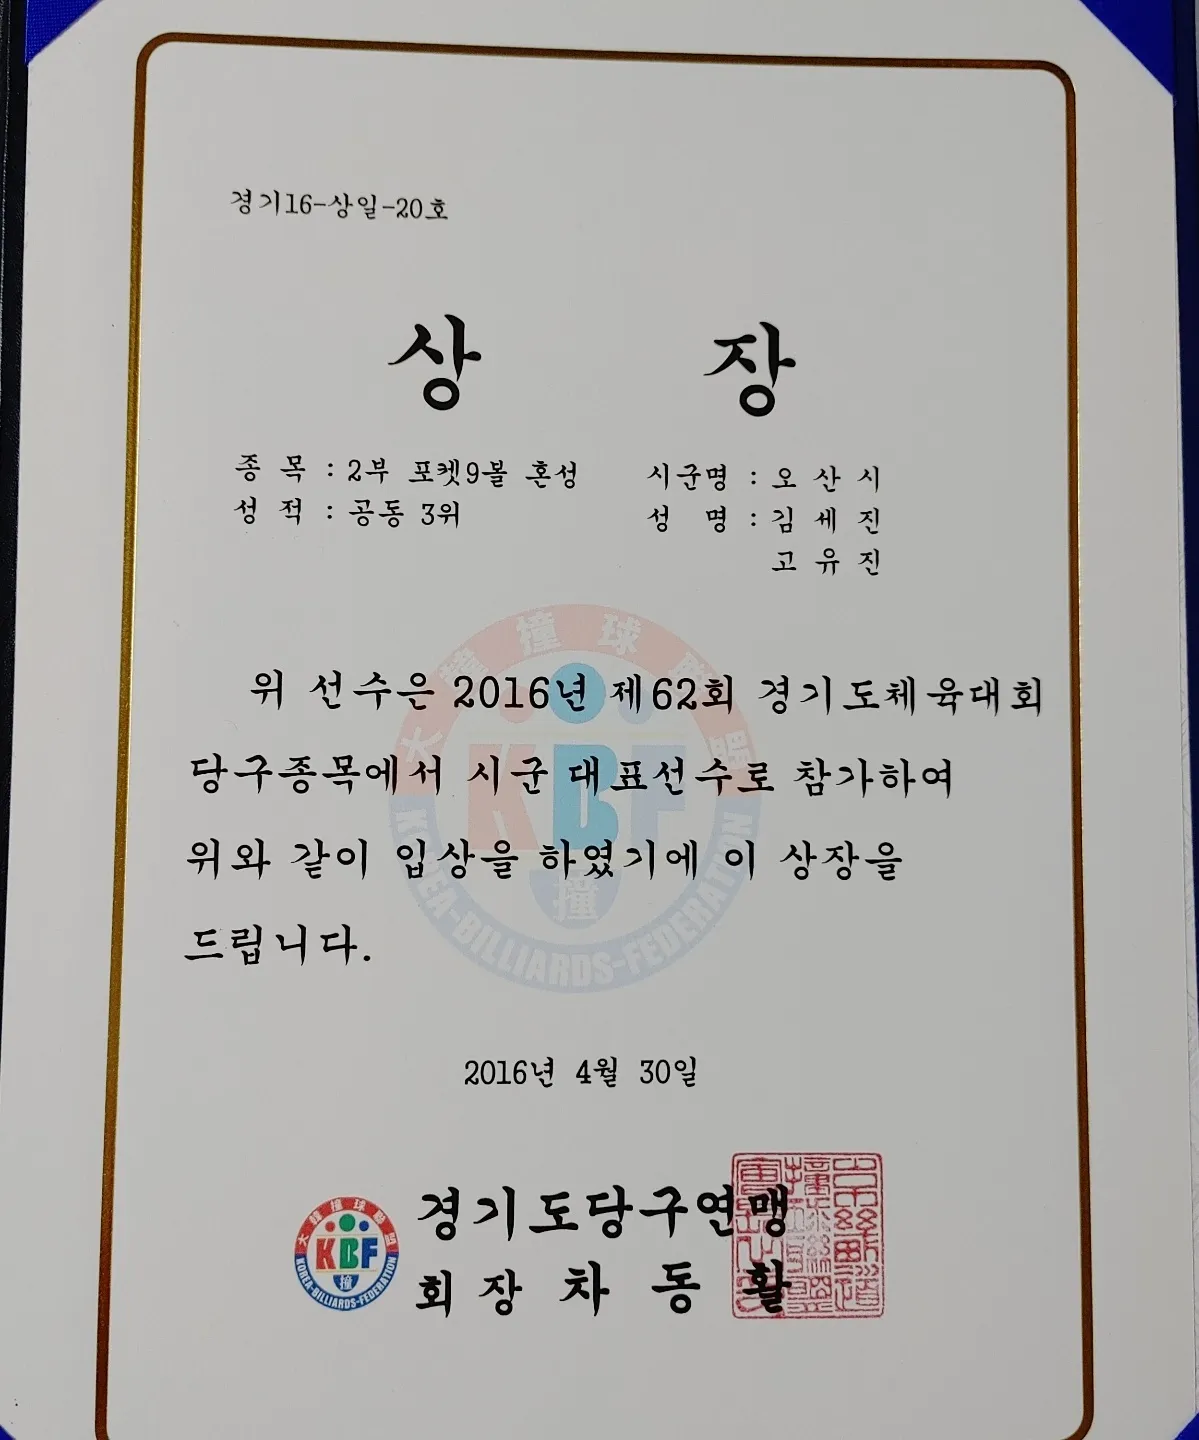 경기16-상일-20호
상 장
종 목 : 2부 포켓9볼 혼성
성 적 : 공동 3위
시군명 : 오 산 시
성 명 : 김 세 진
고 유 진
위 선수은 2016년 제62회 경기도체육대회
당구종목에서 시군 대표선수로 참가하여
위와 같이 입상을 하였기에 이 상장을
드립니다.
大韓撞球聯盟
KBF
撞
KOREA-BILLIARDS-FEDERATION
2016년 4월 30일
大韓撞球聯盟
KBF
撞
KOREA-BILLIARDS-FEDERATION
경기도당구연맹
회 장 차 동 활